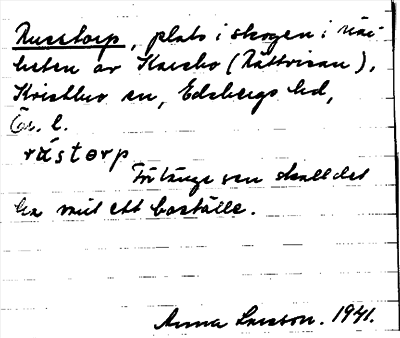 Russtorp, plats i skogen i när-
heten av Karsbo (Rättvisan),
Kvistbro sn, Edsbergs hd,
Ör. l.
rústorp
För länge sen skall det
ha varit ett boställe.
Anna Larsson. 1941.